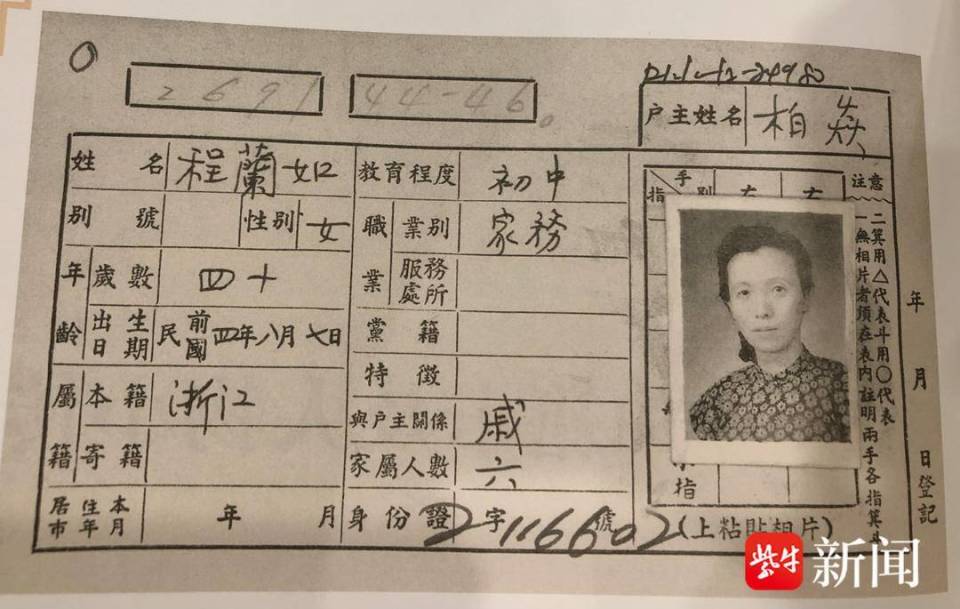 0
2691
44-46
戶主姓名 柏焱
姓名 程蘭如
別號 性別 女
年齡 歲數 四十
出生日期 民國前四年八月七日
屬籍 本籍 浙江
寄籍
居住本市年月 年 月
教育程度 初中
職業 業別 家務
服務處所
黨籍
特徵
與戶主關係 戚
家屬人數 六
身份證 2字 116602 號
手別 指
注意
一無相片者須在表內註明兩手各指箕斗
二箕用△代表斗用○代表
指
(上粘貼相片)
年 月 日登記
紫牛新闻